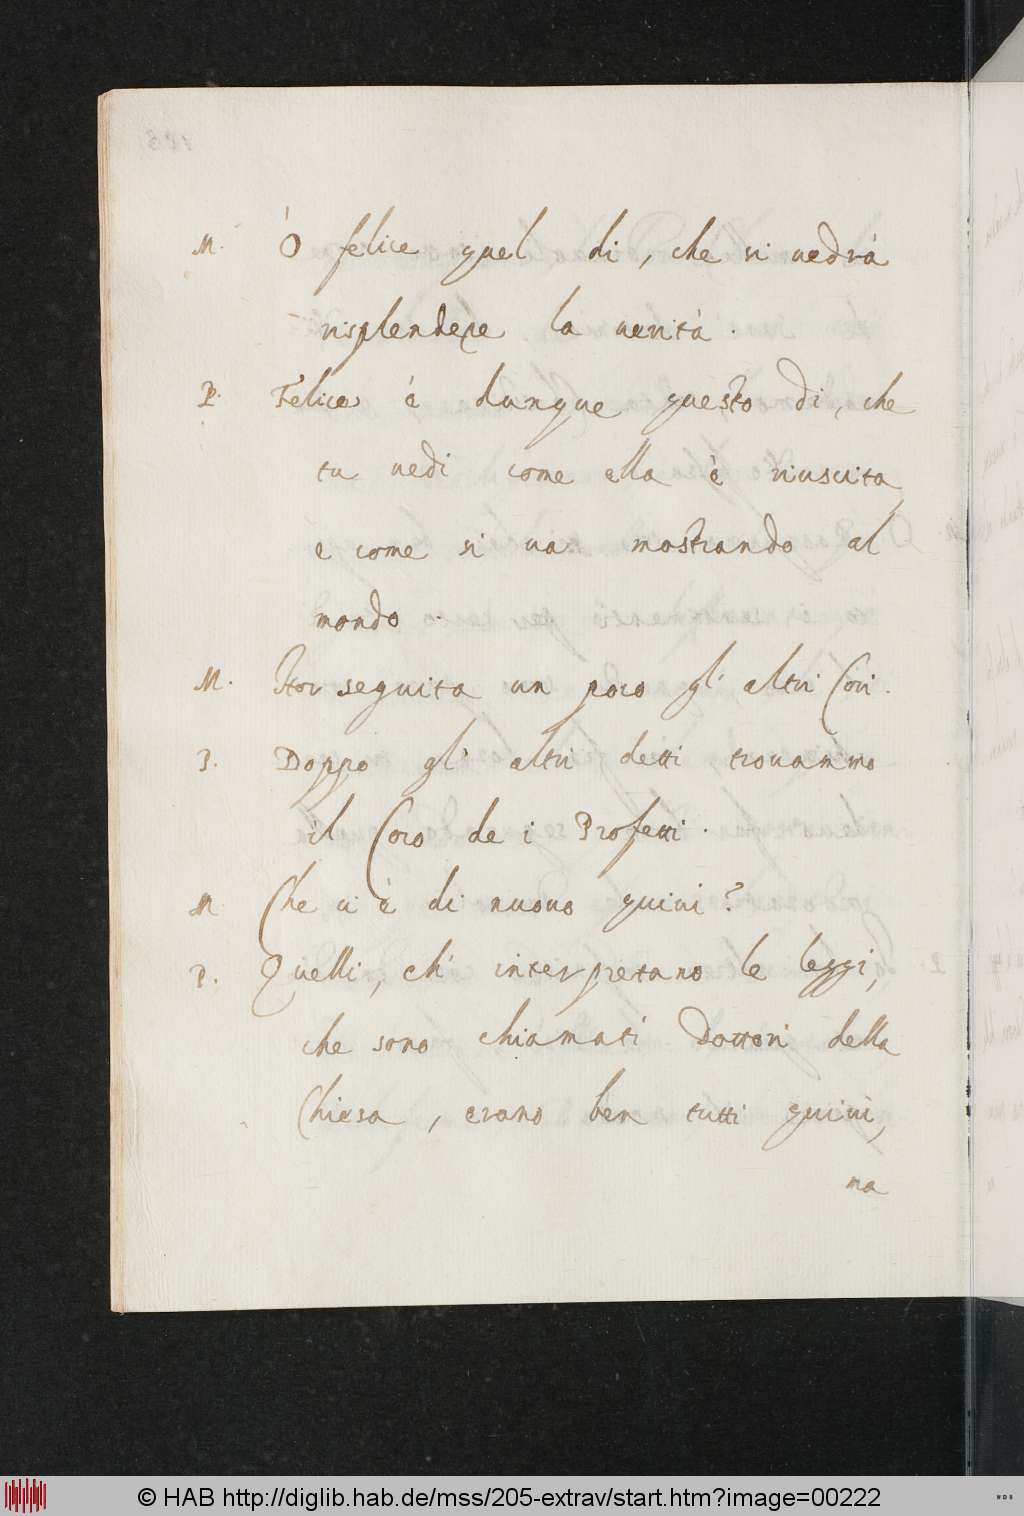 M. Ó felice quel di, che si uedrà
risplendere la uerità.
P. Felice è dunque questo di, che
tu uedi come ella è riuscita
e come si ua mostrando al
mondo.
M. Hor seguita un poco gl' altri Cori.
P. Doppo gl' altri detti trouammo
il Coro de i Profetti.
M Che ui è di nuouo quiui?
P. Quelli, ch' interpretano le leggi,
che sono chiamati Dottori della
Chiesa, erano ben tutti quiui,
ma
© HAB http://diglib.hab.de/mss/205-extrav/start.htm?image=00222